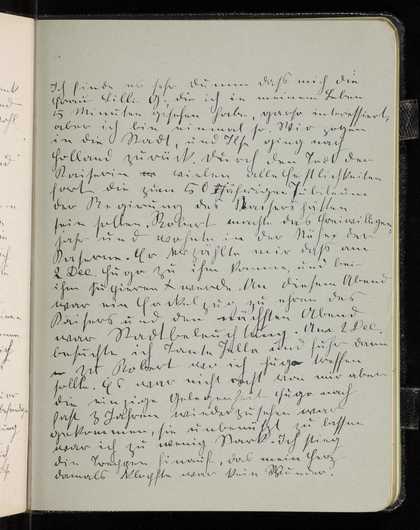 Ich finde es sehr dumm daſs mich die
Frau Lill. G, die ich in meinem Leben
5 Minuten gesehen habe, so interessiert,
aber ich bin einmal so. Wir zogen
in die Stadt, und Ilse ging nach
Holland zurück. Durch den Tod der
Kaiserin vielen alle Festlichkeiten
fort die zum 50 jährigen Jubiläum
der Regierung des Kaisers hätten
sein sollen. Robert machte das Freiwilligen-
jahr und wohnte in der Nähe der
Kaserne. Er erzählte mir daſs am
2 Dec. Hugo zu ihm komme, und bei
ihm soupieren werde. An diesem Abend
war ein Fackelzug zu ehren des
Kaisers und den nächsten Abend
war Stadtbeleuchtung. Am 2 Dec.
besuchte ich Tante Jella und fuhr dann
zu Robert wo ich Hugo treffen
sollte. Es war nicht recht von mir aber
die einzige Gelegenheit Hugo nach
fast 3 Jahren wiederzusehen war
gekommen, sie unbenützt zu lassen
war ich zu wenig stark. Ich stieg
die Treppen hinauf, das mein Herz
damals klopfte war kein Wunder.